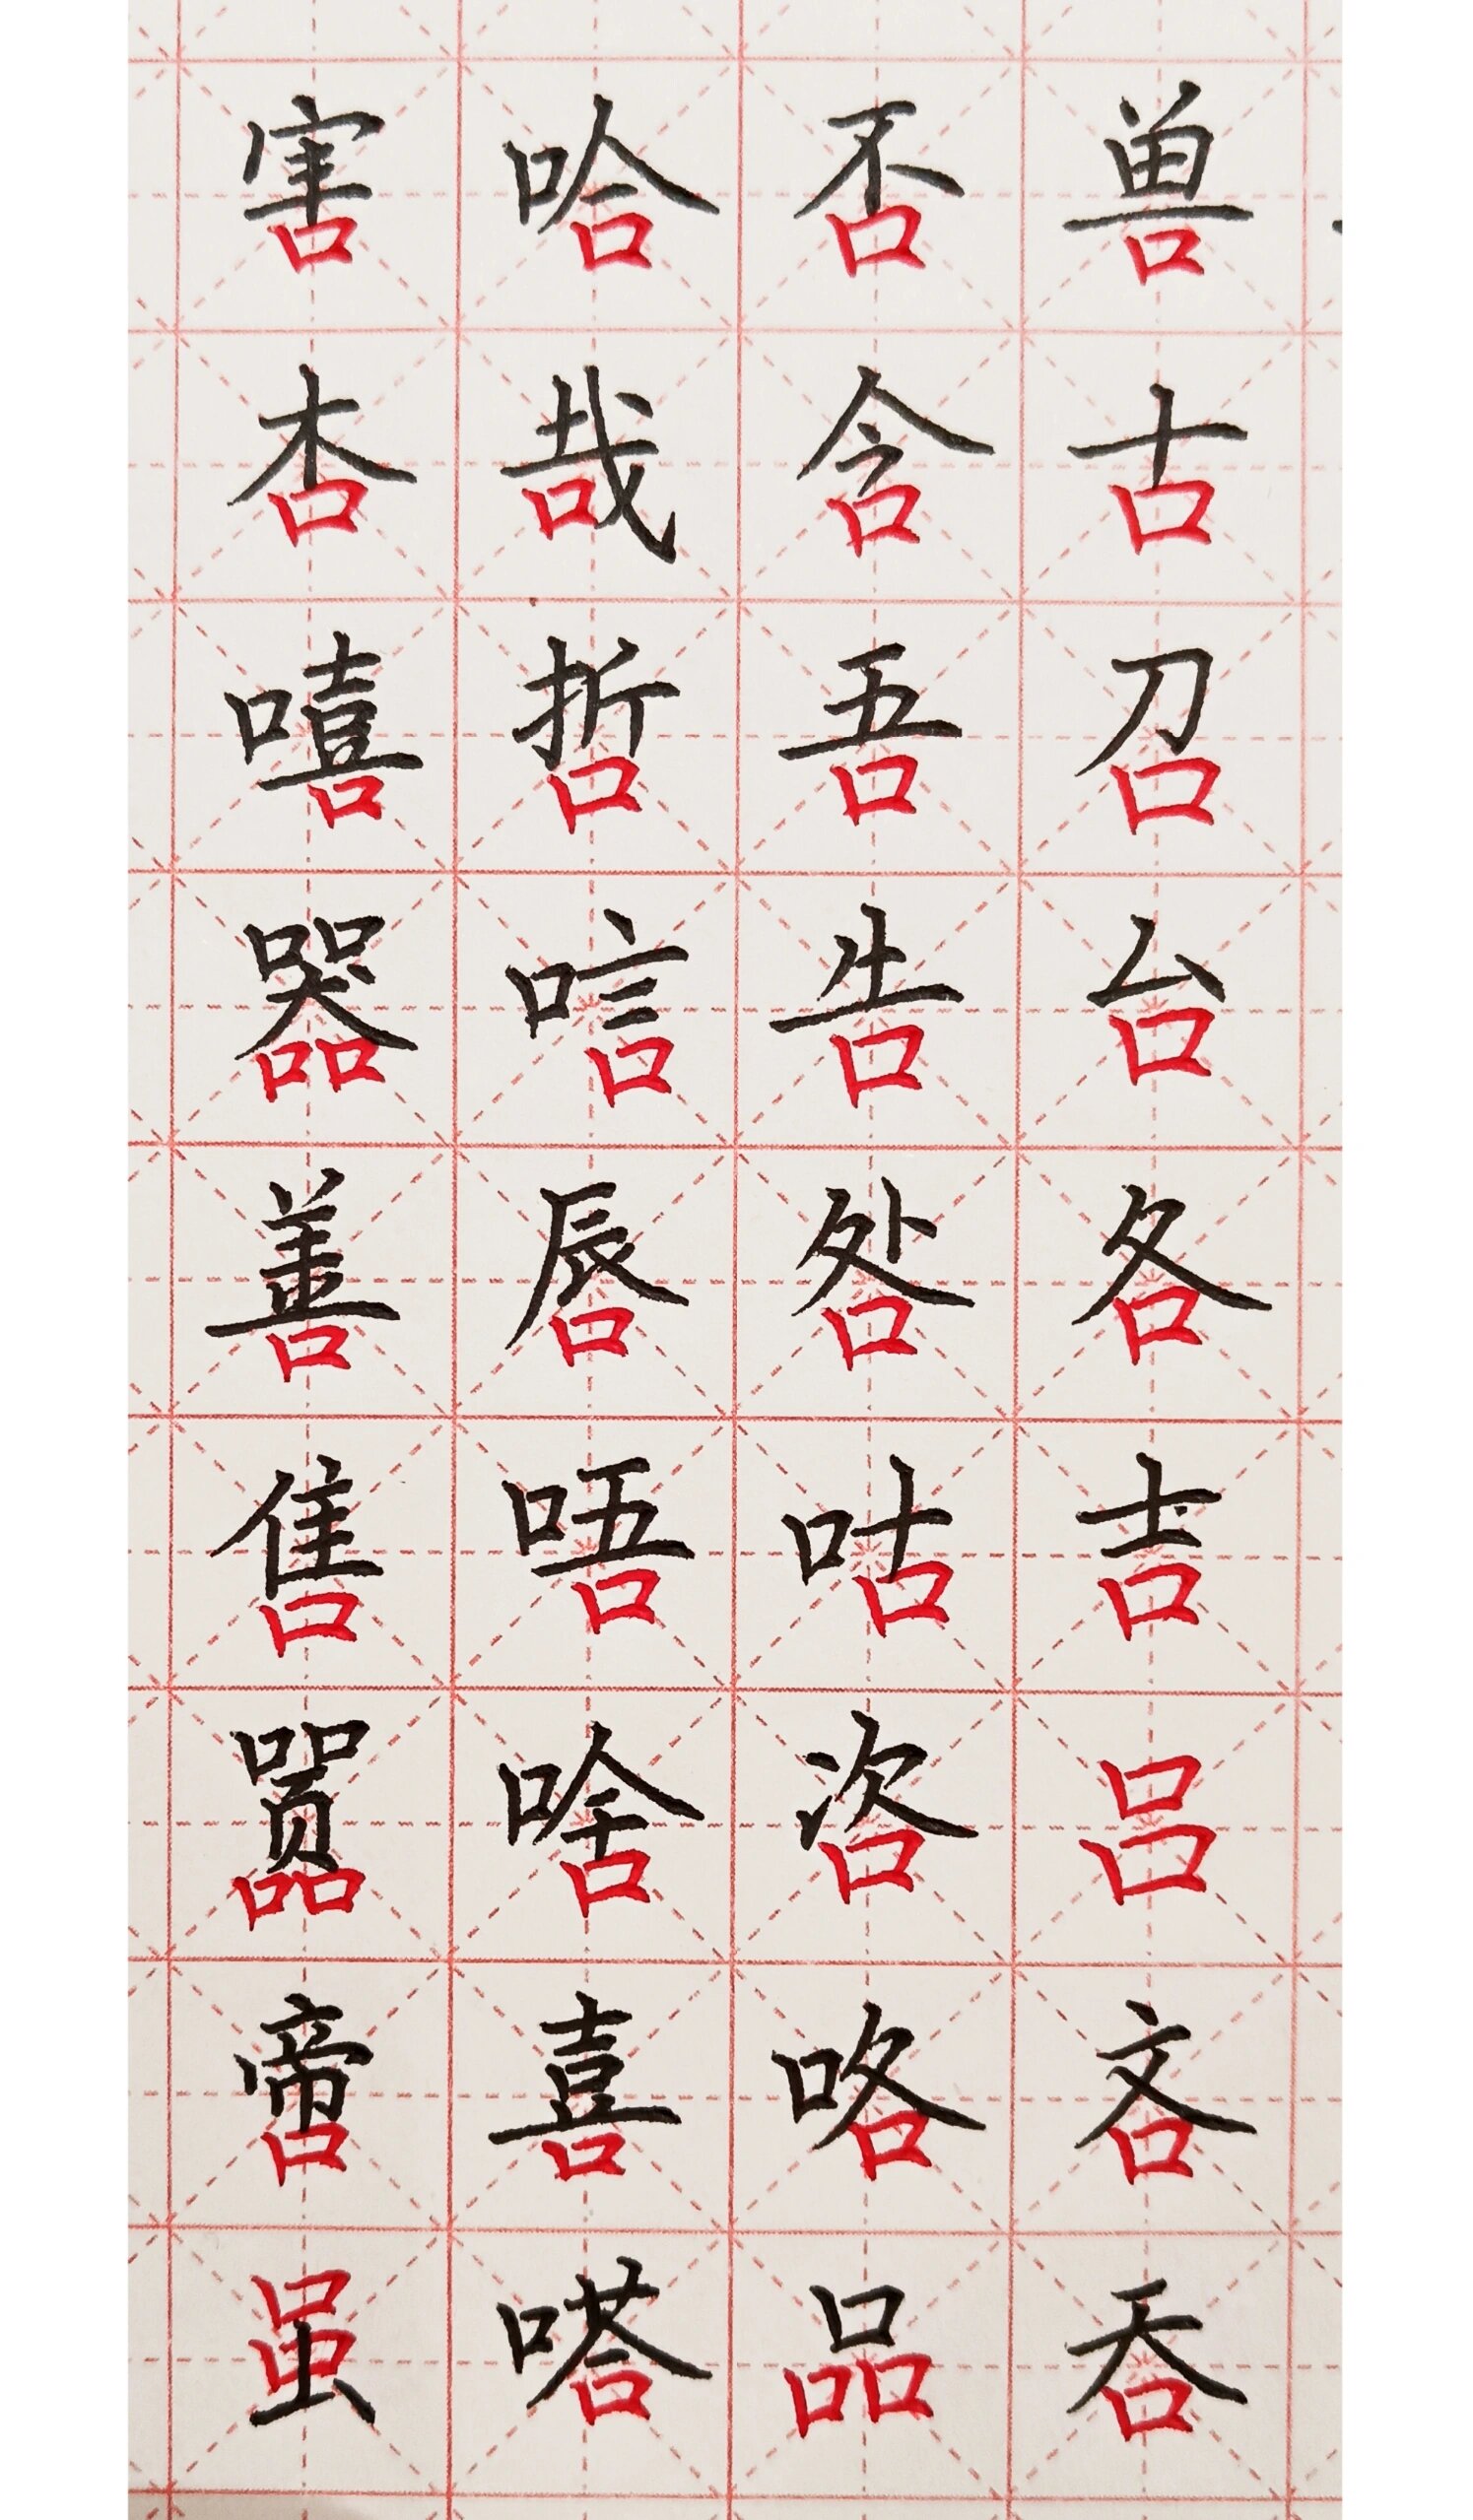 兽古召台各吉吕吝吞
否含吾告咎咕咨咯品
哈哉哲唁唇唔啥喜嗒
害杏嘻器善售嚣啻虽